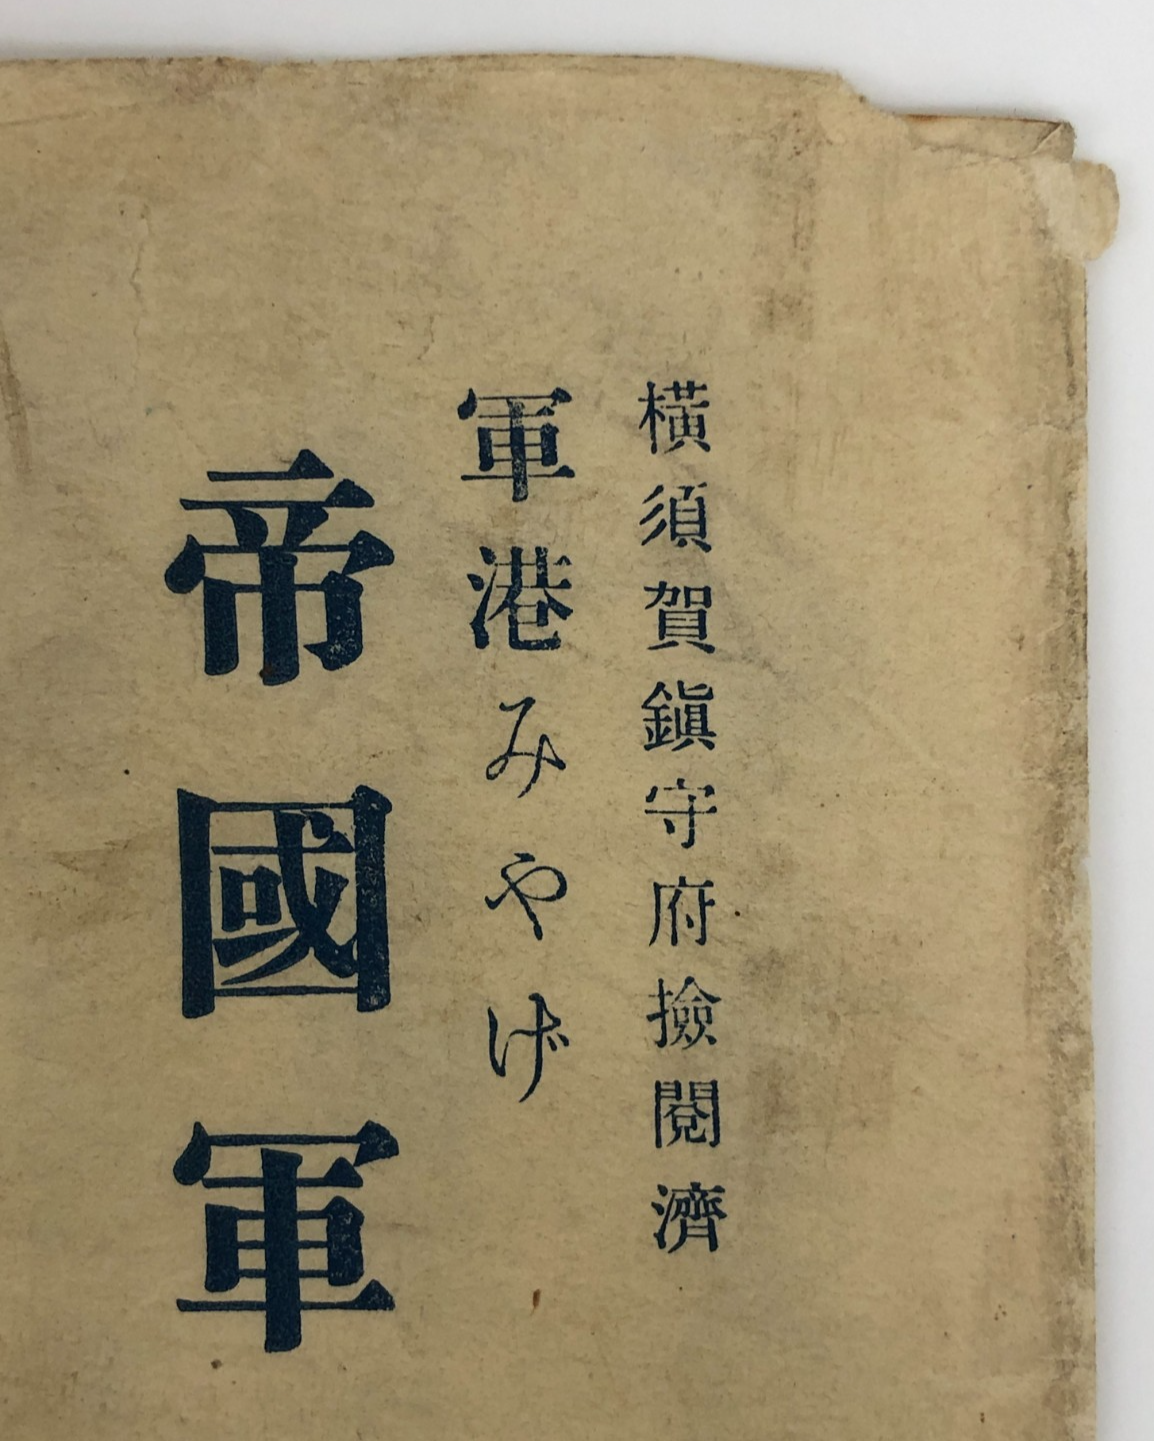 橫須賀鎭守府撿閱濟
軍港みやげ
帝國軍